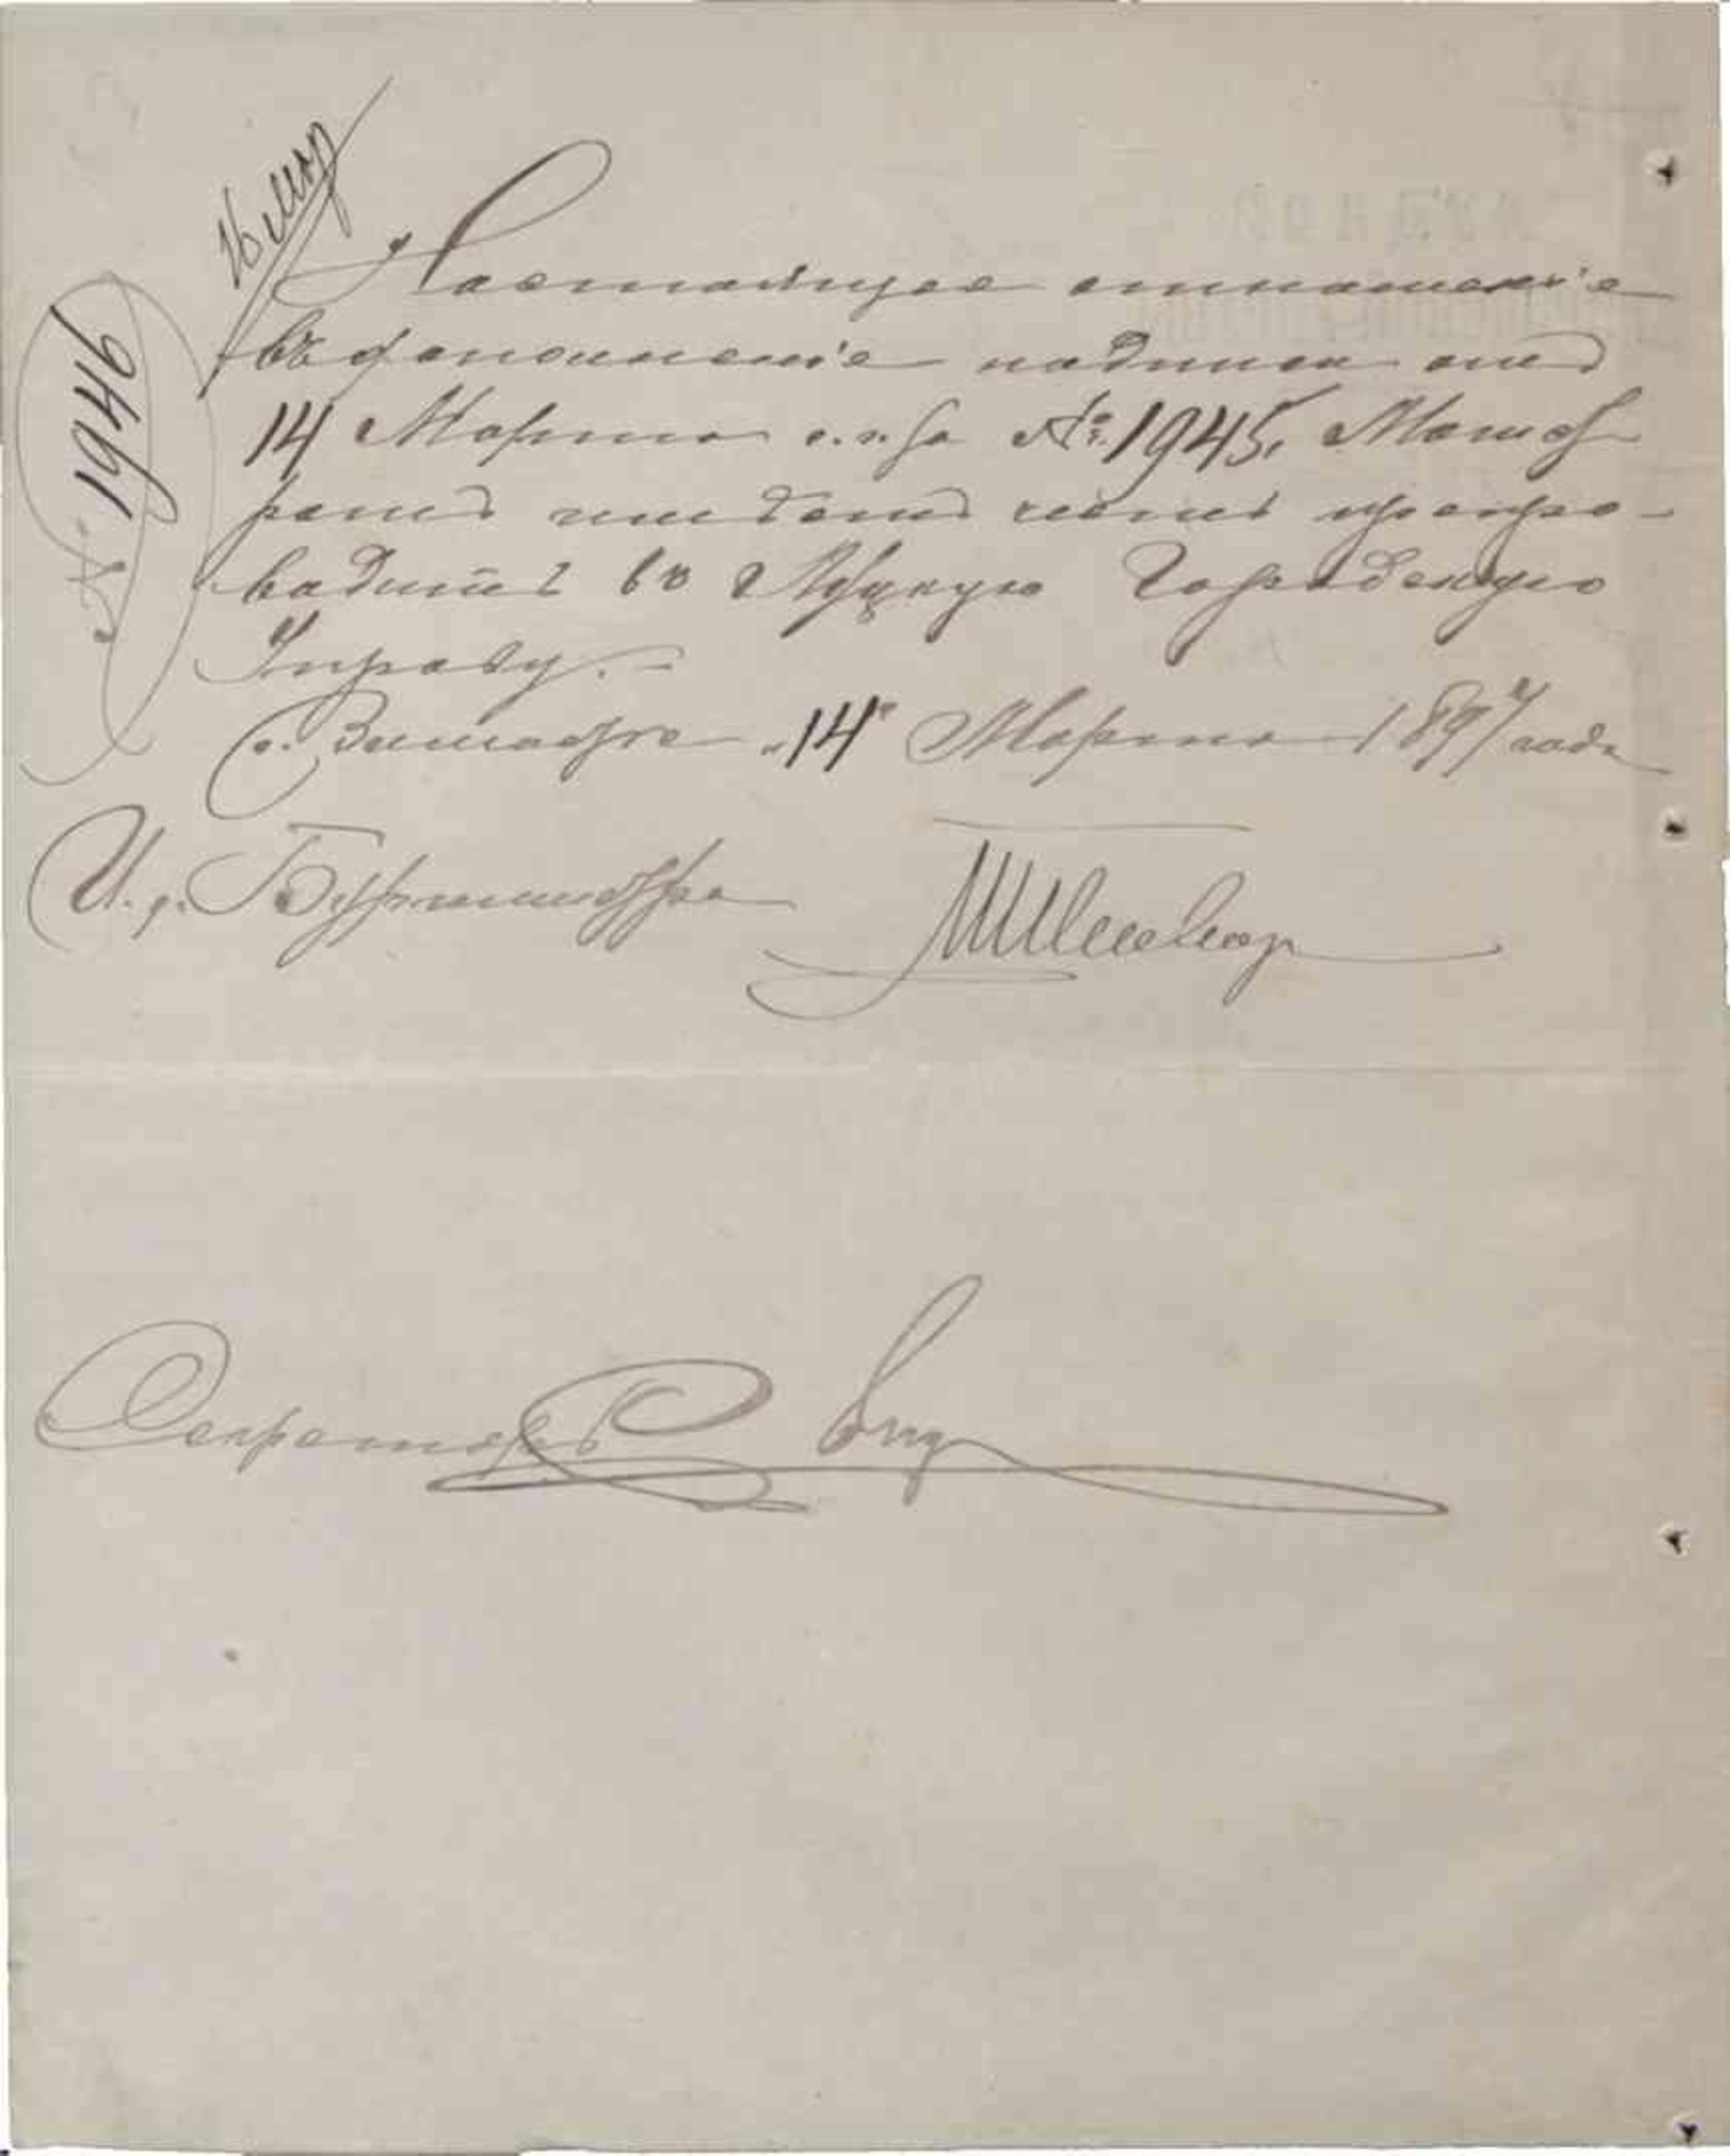 16 Мар
№ 1946
Настоящее отношеніе
въ дополненіе надписи отъ
14 Марта с. г. за № 1945, Магист
ратъ имѣетъ честь препро-
водить въ Луцкую Городскую
Управу.
14 Марта 1897 года
И. д. Бургомистра
Секретарь